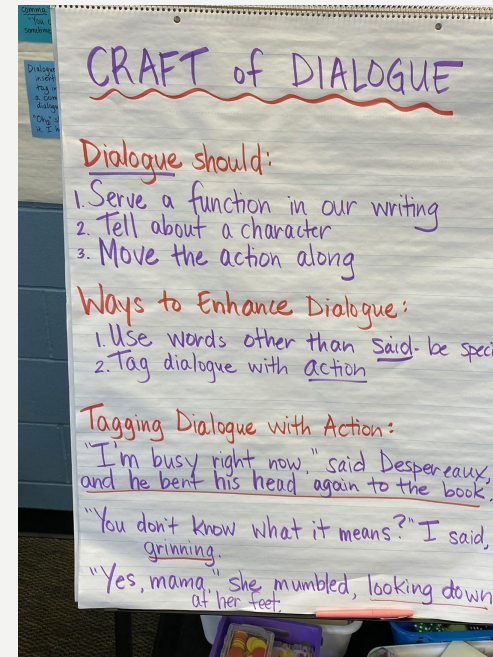 comma
"You
sometime
Dialogue
insert
tag in
a com
dialogu
"Okay"
it. I h
CRAFT of DIALOGUE
Dialogue should:
1. Serve a function in our writing
2. Tell about a character
3. Move the action along
Ways to Enhance Dialogue:
1. Use words other than said - be speci
2. Tag dialogue with action
Tagging Dialogue with Action:
"I'm busy right now," said Despereaux,
and he bent his head again to the book.
"You don't know what it means?" I said,
grinning.
"Yes, mama," she mumbled, looking down
at her feet.